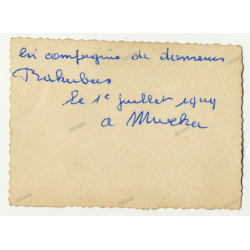 en compagnie de danseurs
Bakubas
le 1e juillet 1949
a Mweka